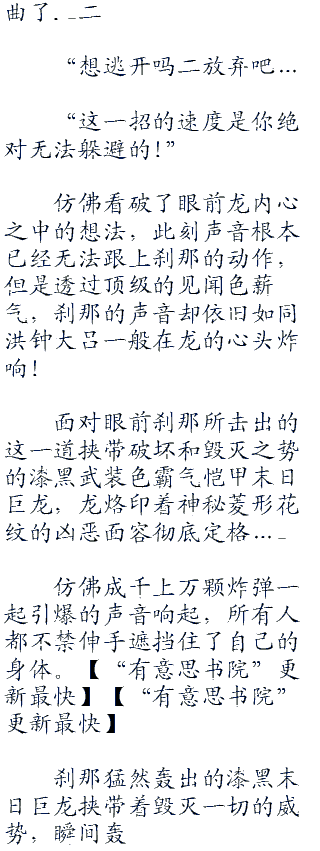 曲了._二
“想逃开吗二放弃吧...
“这一招的速度是你绝
对无法躲避的!”
仿佛看破了眼前龙内心
之中的想法，此刻声音根本
已经无法跟上刹那的动作，
但是透过顶级的见闻色薪
气，刹那的声音却依旧如同
洪钟大吕一般在龙的心头炸
响!
面对眼前刹那所击出的
这一道挟带破坏和毁灭之势
的漆黑武装色霸气恺甲末日
巨龙，龙烙印着神秘菱形花
纹的凶恶面容彻底定格..._
仿佛成千上万颗炸弹一
起引爆的声音响起，所有人
都不禁伸手遮挡住了自己的
身体。【“有意思书院”更
新最快】【“有意思书院”
更新最快】
刹那猛然轰出的漆黑末
日巨龙挟带着毁灭一切的威
势，瞬间轰